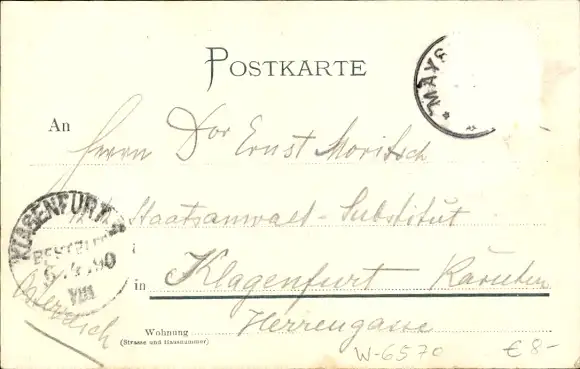 POSTKARTE
MAYS
An Herrn Dor Ernst Moritsch
Staatsanwalt-Substitut
KLAGENFURT
BESTELLT
VIII
in Klagenfurt Kärnten
Wohnung Herrengasse
(Strasse und Hausnummer)
W-6570 €8-